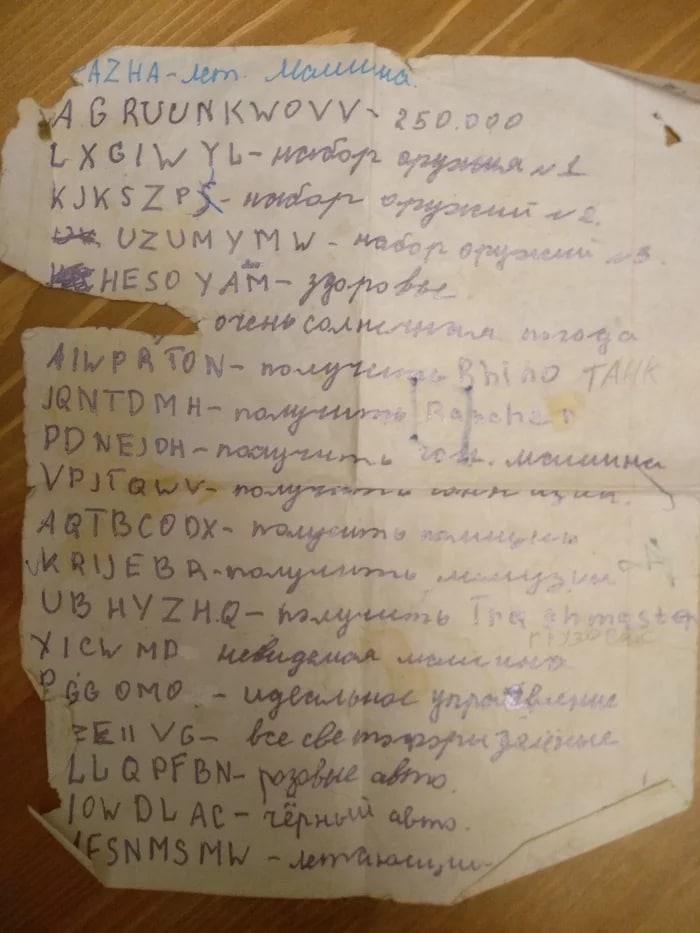 AZHA - лет. машина.
AGRUUNKWOVV - 250.000
LXGIWYL - набор оружия №1
KJKSZPJ - набор оружий №2.
UZUMYMW - набор оружий №3.
HESOYAM - здоровье
очень солнечная погода
AIWPRTON - получить Rhino ТАНК
JQNTDMH - получить [Rancher]
PDNEJOH - получить гон. машина
VPJTQWV - получить
AQTBCODX - получить
KRIJEBR - получить
UBHYZHQ - получить Trashmaster
грузовик
YICWMD невидемая машина
PGGOMO - идеальное управление
ZEIIVG - все светофоры зелёные
LLQPFBN - розовые авто.
IOWDLAC - чёрный авто.
IFSNMSMW - летающий